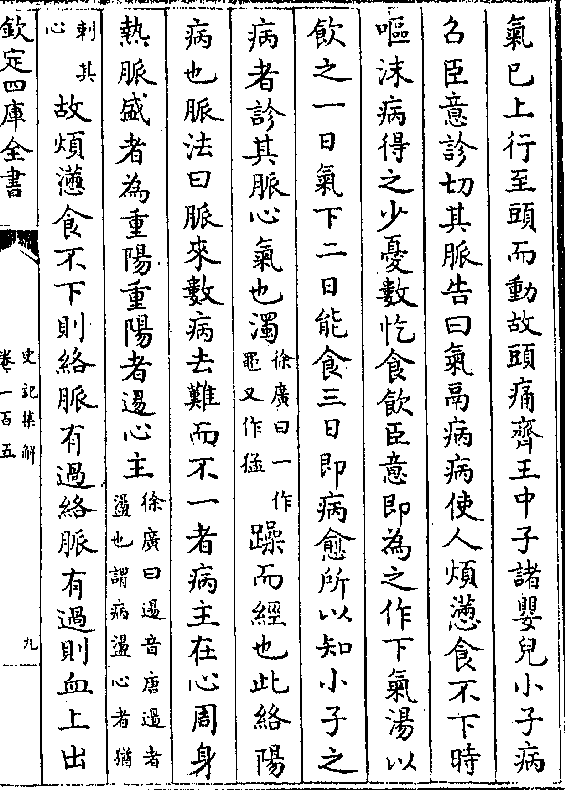 氣已上行至頭而動故頭痛齊王中子諸嬰兒小子病
召臣意診切其脈告曰氣鬲病病使人煩懣食不下時
嘔沫病得之少憂數忔食飲臣意即為之作下氣湯以
飲之一日氣下二日能食三日即病愈所以知小子之
病者診其脈心氣也濁徐廣曰一作黽又作猛躁而經也此絡陽
病也脈法曰脈來數病去難而不一者病主在心周身
熱脈盛者為重陽重陽者逿心主徐廣曰逿音唐逿者盪也謂病盪心者猶
刺其心故煩懣食不下則絡脈有過絡脈有過則血上出
欽定四庫全書
史記集解
卷一百五
九